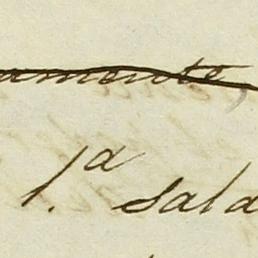 amente,
1.a Sala